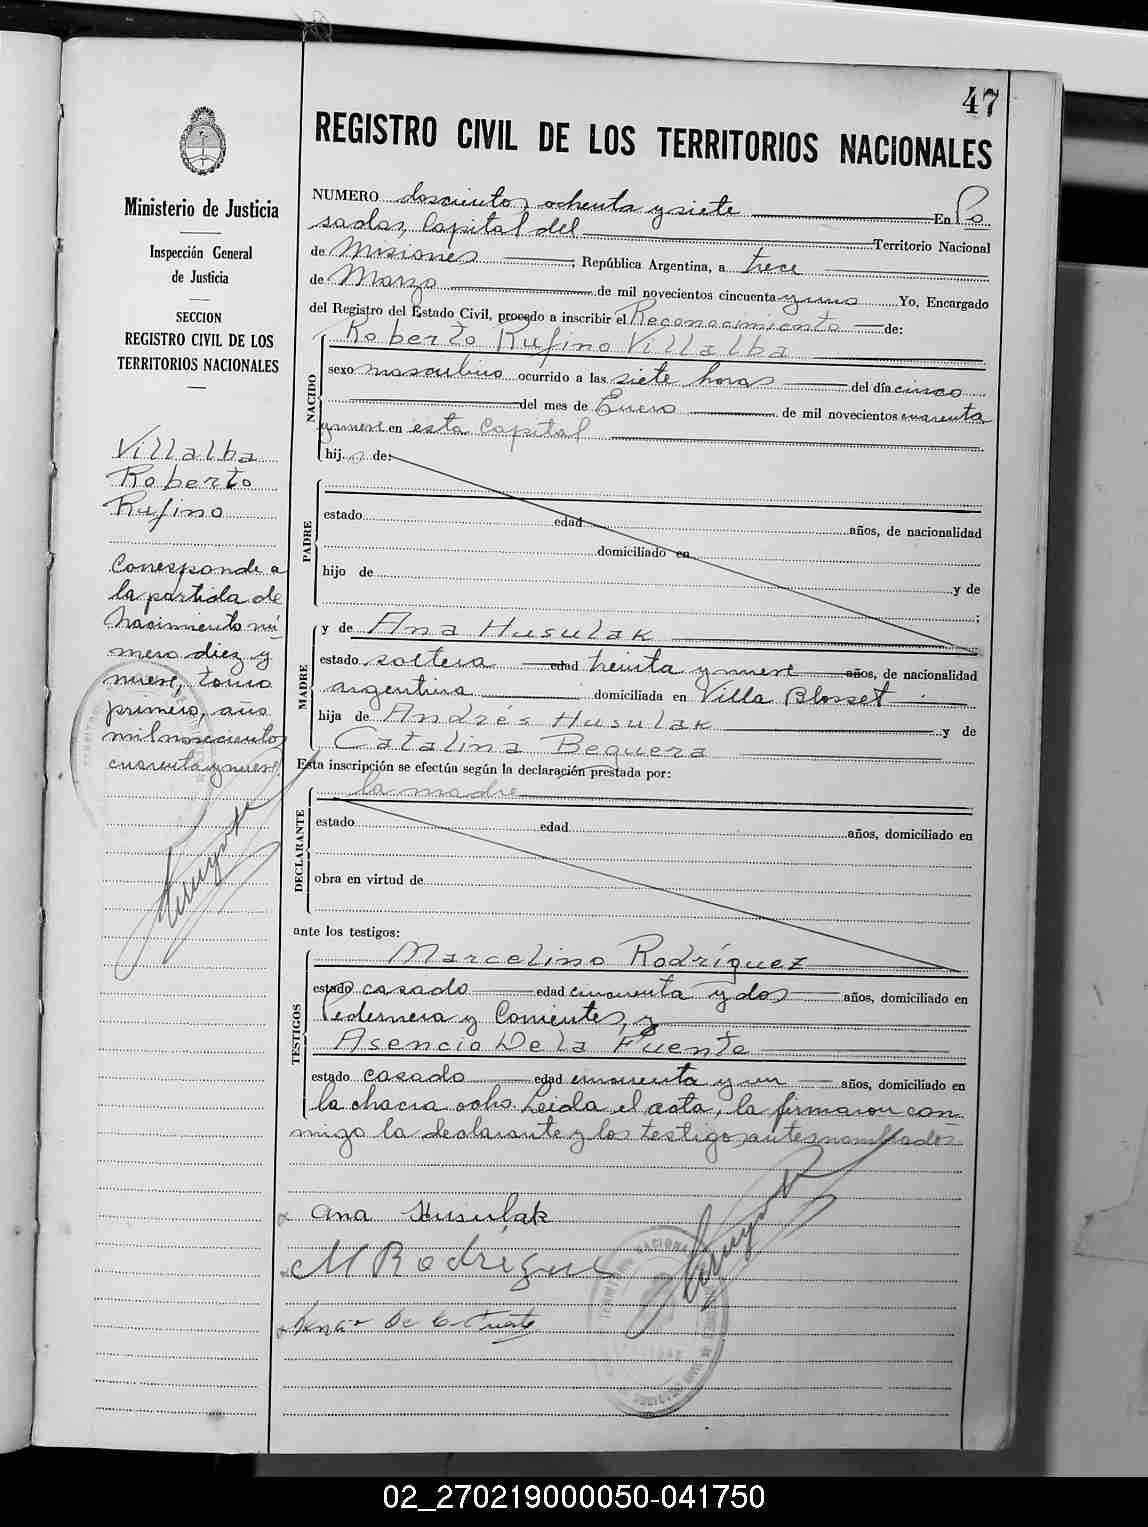 47
REGISTRO CIVIL DE LOS TERRITORIOS NACIONALES
Ministerio de Justicia
Inspección General
de Justicia
SECCION
REGISTRO CIVIL DE LOS
TERRITORIOS NACIONALES
Villalba
Roberto
Rufino
Corresponde a
la partida de
Nacimiento nú-
mero diez y
nueve, tomo
primero, año
mil novecientos
cuarenta y nueve.
NUMERO doscientos ochenta y siete En Po
sadas, Capital del Territorio Nacional
de Misiones, República Argentina, a trece
de Marzo de mil novecientos cincuenta y uno Yo, Encargado
del Registro del Estado Civil, procedo a inscribir el Reconocimiento de:
Roberto Rufino Villalba
NACIDO
sexo masculino ocurrido a las siete horas del día cinco
del mes de Enero de mil novecientos cuarenta
y nueve en esta Capital
hijo de:
PADRE
estado edad años, de nacionalidad
domiciliado en
hijo de y de
;
MADRE
y de Ana Husulak
estado soltera edad treinta y nueve años, de nacionalidad
argentina domiciliada en Villa Blosset
hija de Andrés Husulak y de
Catalina Beguera
Esta inscripción se efectúa según la declaración prestada por:
la madre
DECLARANTE
estado edad años, domiciliado en
obra en virtud de
ante los testigos:
TESTIGOS
Marcelino Rodríguez
estado casado edad cincuenta y dos años, domiciliado en
Pedernera y Corrientes, y
Asencio De la Fuente
estado casado edad cincuenta y un años, domiciliado en
la chacra ocho. Leida el acta, la firmaron con-
migo la declarante y los testigos antesnombrados
Ana Husulak
M Rodríguez
De la Fuente
02_270219000050-041750